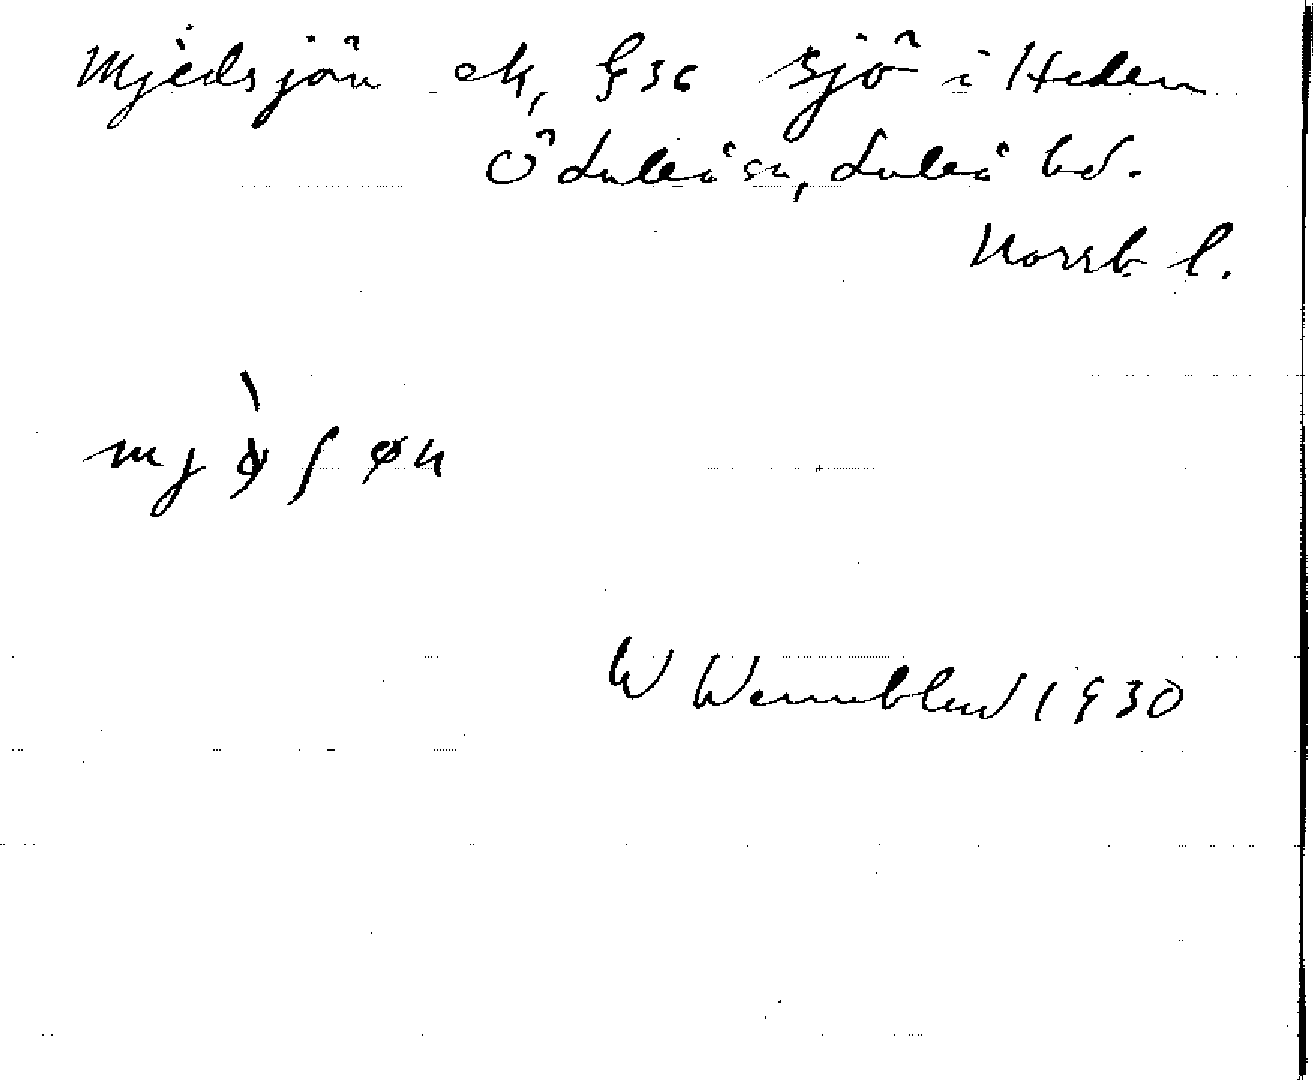 Mjèdsjön ek, §36 sjö i Heden
Ö Luleå sn, Luleå bd.
Norrb. l.
W Wennblad 1930